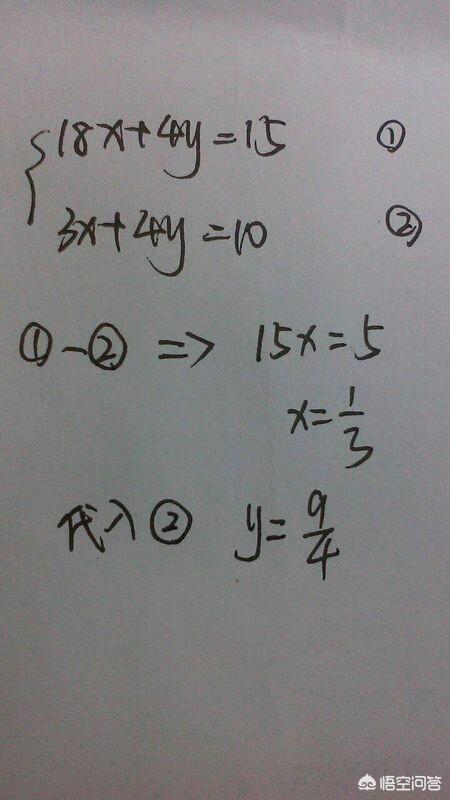 18x+4y=15 ①
3x+4y=10 ②
①-②=> 15x=5
x=1/3
代入② y=9/4
悟空问答